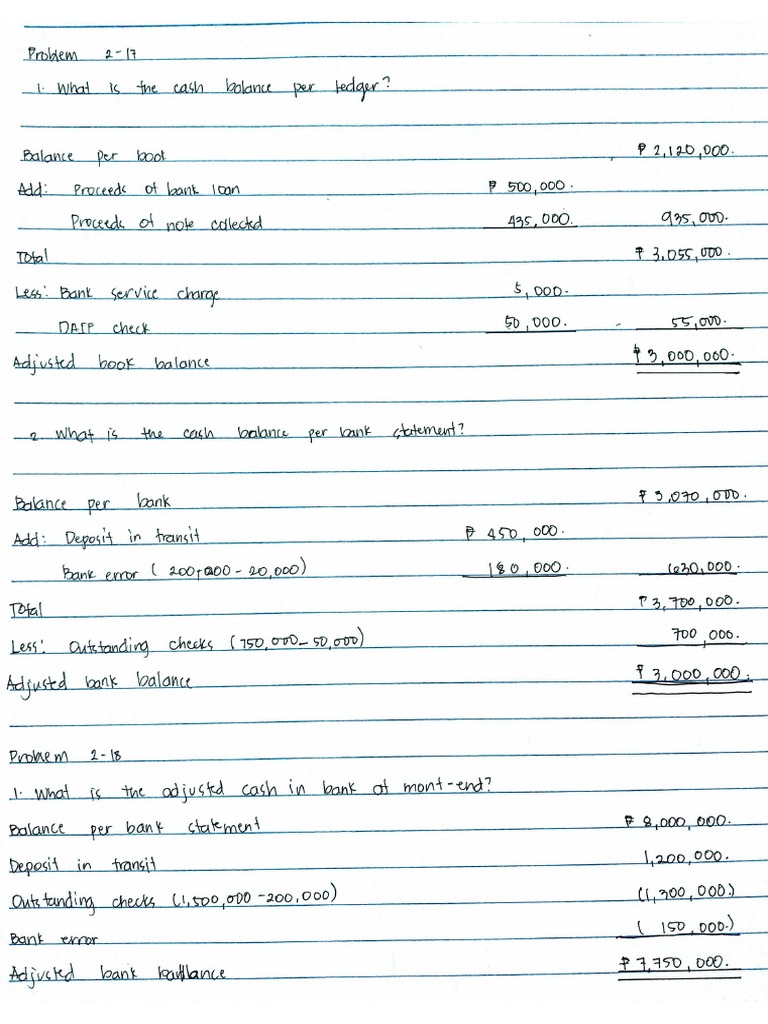 Problem 2-17
1. What is the cash balance per ledger?
Balance per book ₱ 2,120,000.
Add: Proceeds of bank loan ₱ 500,000.
Proceeds of note collected 435,000. 935,000.
Total ₱ 3,055,000.
Less: Bank service charge 5,000.
DAIF check 50,000. 55,000.
Adjusted book balance ₱ 3,000,000.
2. What is the cash balance per bank statement?
Balance per bank ₱ 3,070,000.
Add: Deposit in transit ₱ 450,000.
Bank error (200,000 - 20,000) 180,000. 630,000.
Total ₱ 3,700,000.
Less: Outstanding checks (750,000 - 50,000) 700,000.
Adjusted bank balance ₱ 3,000,000.
Problem 2-18
1. What is the adjusted cash in bank at mont-end?
Balance per bank statement ₱ 8,000,000.
Deposit in transit 1,200,000.
Outstanding checks (1,500,000 - 200,000) (1,300,000.)
Bank error ( 150,000.)
Adjusted bank balance ₱ 7,750,000.